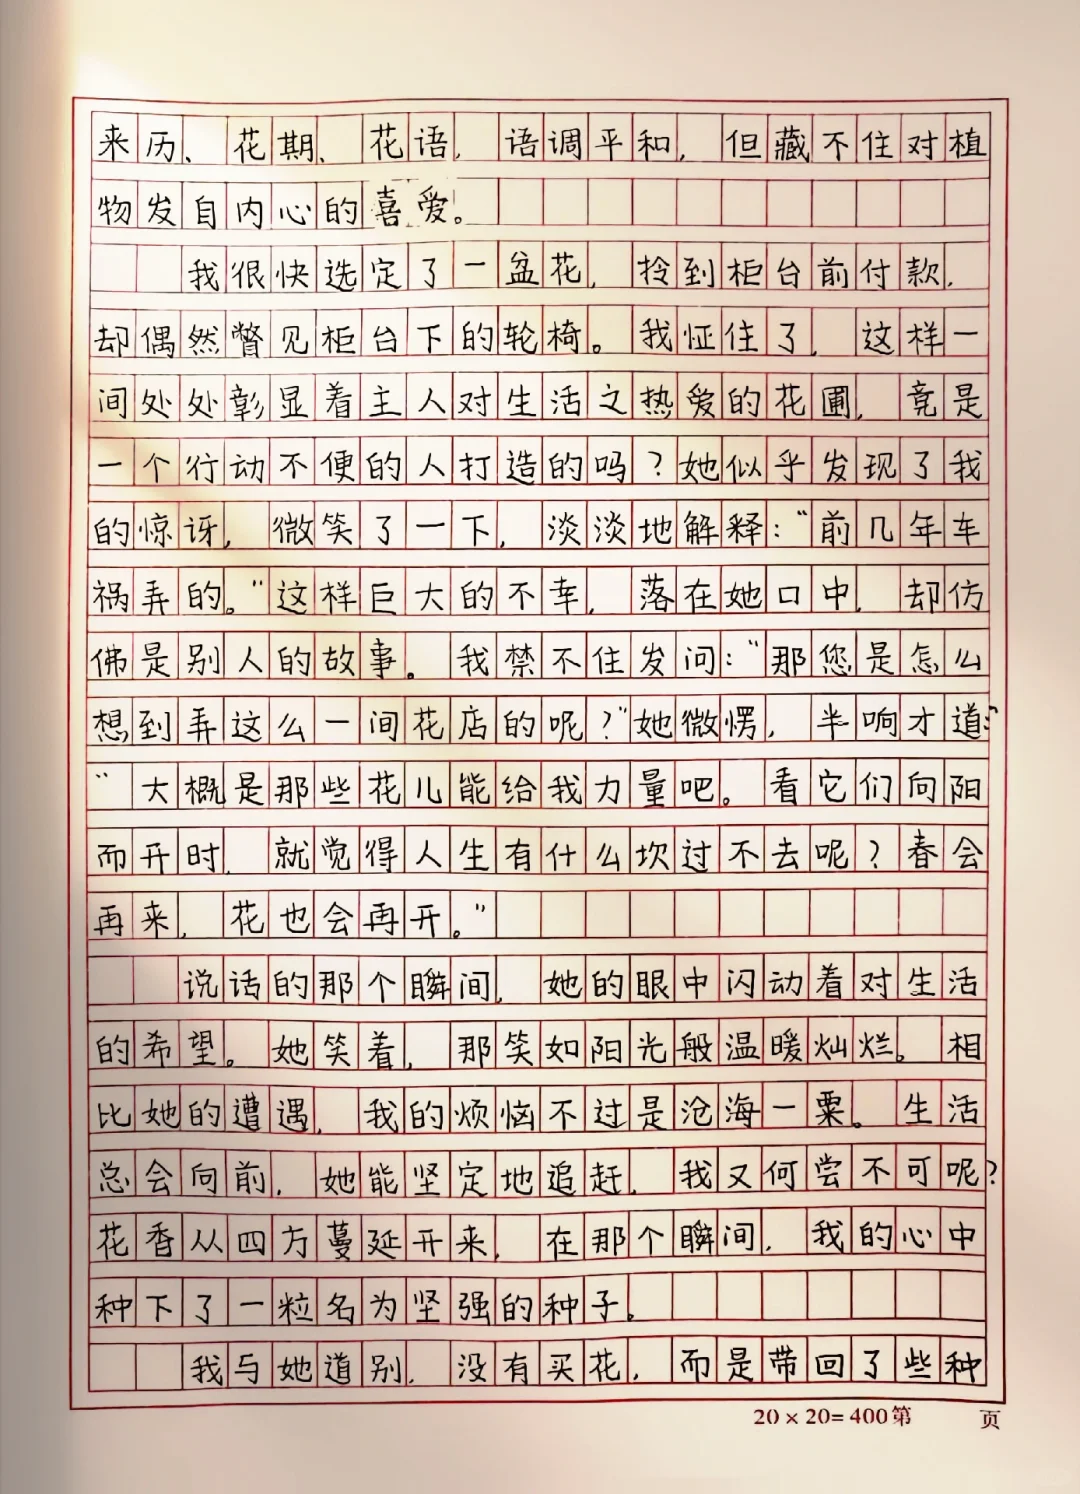 来历、花期、花语，语调平和，但藏不住对植
物发自内心的喜爱。
我很快选定了一盆花，拎到柜台前付款，
却偶然瞥见柜台下的轮椅。我怔住了，这样一
间处处彰显着主人对生活之热爱的花圃，竟是
一个行动不便的人打造的吗？她似乎发现了我
的惊讶，微笑了一下，淡淡地解释：“前几年车
祸弄的。”这样巨大的不幸，落在她口中，却仿
佛是别人的故事。我禁不住发问：“那您是怎么
想到弄这么一间花店的呢？”她微愣，半响才道：
“大概是那些花儿能给我力量吧。看它们向阳
而开时，就觉得人生有什么坎过不去呢？春会
再来，花也会再开。”
说话的那个瞬间，她的眼中闪动着对生活
的希望。她笑着，那笑如阳光般温暖灿烂。相
比她的遭遇，我的烦恼不过是沧海一粟。生活
总会向前，她能坚定地追赶，我又何尝不可呢？
花香从四方蔓延开来，在那个瞬间，我的心中
种下了一粒名为坚强的种子。
我与她道别，没有买花，而是带回了些种
20×20=400第 页